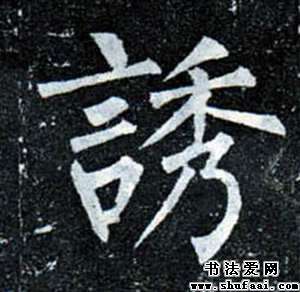 誘
书法爱网
www.shufaai.com